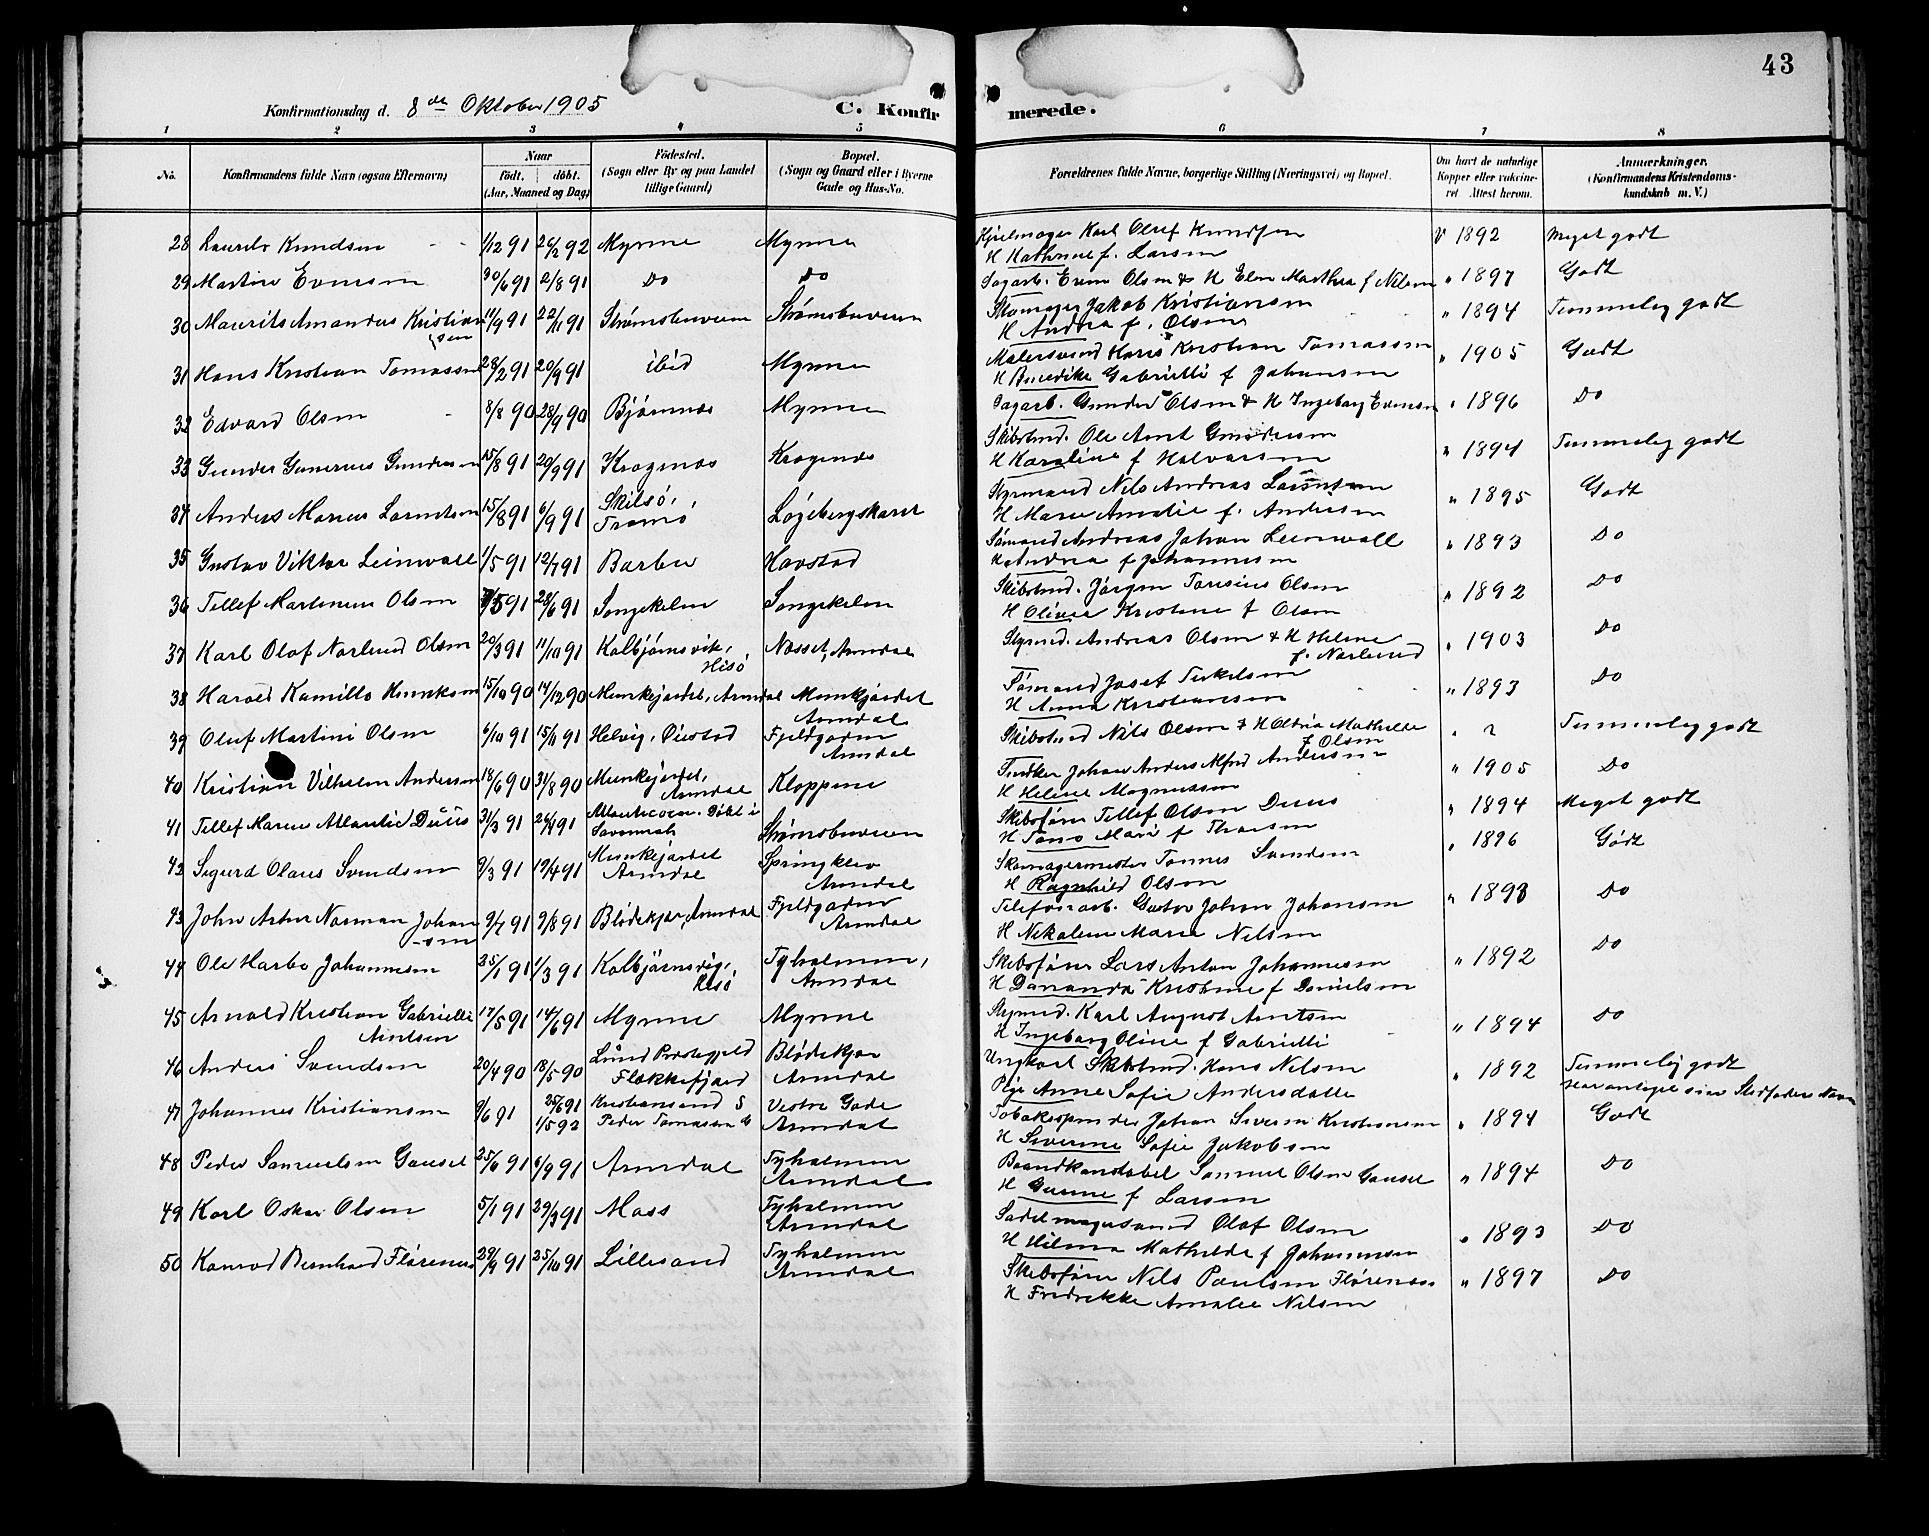 43
Konfirmationsdag d. 8de Oktober 1905
C. Konfirmerede.
1 2 3 4 5 6 7 8
No.
Konfirmandens fulde Navn (ogsaa Efternavn)
Naar
født. døbt.
(Aar, Maaned og Dag)
Fødested.
(Sogn eller By og paa Landet
tillige Gaard)
Bopæl.
(Sogn og Gaard eller i Byerne
Gade og Hus-No.
Forældrenes fulde Navne, borgerlige Stilling (Næringsvei) og Bopæl.
Om havt de naturlige
Kopper eller vaccine-
ret Attest herom.
Anmærkninger.
(Konfirmandens Kristendoms-
kundskab m. V.)
28 Laurits Knudsen 1/12 91 26/2 92 Myrene Myrene Hjulmager Karl Oluf Knudsen V 1892 Meget godt
H Kathrine f. Larsen
29 Martin Evensen 30/6 91 2/8 91 Do Do Sagarb. Even Olsen & H Elen Marthea f Nilsen " 1897 Godt
30 Maurits Amandus Kristian 11/9 91 22/11 91 Strømsbuveien Strømsbuveien Skomager Jakob Kristiansen " 1894 Temmelig godt
sen H Andrea f. Olsen
31 Hans Kristian Tomassen 28/2 91 20/9 91 ibid Myrene Malersvend Hans Kristian Tomassen " 1905 Godt
H Benedikte Gabrielli f Johansen
32 Edvard Olsen 8/8 90 28/9 90 Bjørnnes Myrene Sagarb. Gunder Olsen & H Ingeborg Evensen " 1896 Do
33 Gunder Gunerius Gundersen 15/8 91 20/9 91 Kragenæs Kragenæs Skibstmd. Ole Arnt Gundersen " 1894 Temmelig godt
H Karoline f Halvorsen
34 Anders Marius Larentsen 15/8 91 6/9 91 Skilsø, Tromø Løgebergskaret Styrmand Nils Andreas Larentsen " 1895 Godt
H Marie Amalie f. Andersen
35 Gustav Viktor Leinwall 1/5 91 12/7 91 Barbu Havstad Sømand Andreas Johan Leinwall " 1893 Do
H Andrea f Johannesen
36 Tellef Martinius Olsen 5 91 28/6 91 Songekilen Songekilen Skibstmd. Jørgen Taresius Olsen " 1892 Do
H Olivie Kristine f Olsen
37 Karl Olaf Norlund Olsen 20/3 91 11/10 91 Kolbjørnsvik, Hisø Næsset, Arendal Styrmd. Andreas Olsen & H Helene " 1903 Do
f. Norlund
38 Harald Kamillo Henriksen 15/10 90 14/12 90 Munkejordet, Arendal Munkjordet Arendal Sømand Josef Terkelsen " 1893 Do
H Anna Kristiansen
39 Oluf Martini Olsen 6/10 91 15/11 91 Helvig, Øiestad Fjeldgaden Arendal Skibstmd Nils Olsen & H Olava Mathilde " ? Temmelig godt
f Olsen
40 Kristian Vilhelm Andersen 18/6 90 31/8 90 Munkejordet, Arendal Kloppene Snedker Johan Anders Alfred Andersen " 1905 Do
H Helene Magnussen
41 Tellef Marius Atlantic Duus 31/3 91 26/4 91 Atlanticocean. Døbt i Savannah Strømsbuveien Skibsfører Tellef Olsen Duus " 1894 Meget godt
H Tomo Mari f Thorsen
42 Sigurd Olaus Svendsen 9/3 91 19/4 91 Munkejordet Arendal Springklev Arendal Skomagermester Tønnes Svendsen " 1896 Godt
H Ragnhild Olsen
43 John Artur Norman Johan 9/7 91 9/8 91 Blødekjær, Arendal Fjeldgaden Arendal Telefonarb. Gustav Johan Johansen " 1893 Do
-sen H Nikoline Marie Nilsen
44 Ole Harbo Johannesen 25/1 91 1/3 91 Kolbjørnsvig, Hisø Tyholmen, Arendal Skibsfører Lars Anton Johannesen " 1892 Do
H Dananda Kristine f Danielsen
45 Arnold Kristian Gabrielli 17/5 91 14/6 91 Myrene Myrene Styrmd. Karl August Arntsen " 1894 Do
Arntsen H Ingeborg Oline f Gabrielli
46 Anders Svendsen 20/4 90 18/5 90 Lund Præstegjeld Flekkefjord Blødekjær Arendal Ungkarl Skibstmd. Hans Nilsen " 1892 Temmelig godt
Pige Anne Sofie Andersdatter Har antaget sin Stedfaders Navn
47 Johannes Kristiansen 9/6 91 25/6 91 Kristiansand S Vestre Gade Tobakspinder Johan Severin Kristiansen " 1894 Godt
1/5 92 Peder Tomassen Arendal H Severine Sofie Jakobsen
48 Peder Samuelsen Gausel 25/6 91 6/9 91 Arendal Tyholmen Arendal Brandkonstabel Samuel Olsen Gausel " 1894 Do
H Gurine f Larsen
49 Karl Oskar Olsen 5/1 91 29/3 91 Moss Tyholmen Arendal Sadelmagersvend Olaf Olsen " 1893 Do
H Hilma Mathilde f Johannesen
50 Konrad Bernhard Florenæs 29/9 91 25/10 91 Lillesand Tyholmen Arendal Skibsfører Nils Paulsen Florenæs " 1897 Do
H Fredrikke Amalie Nilsen